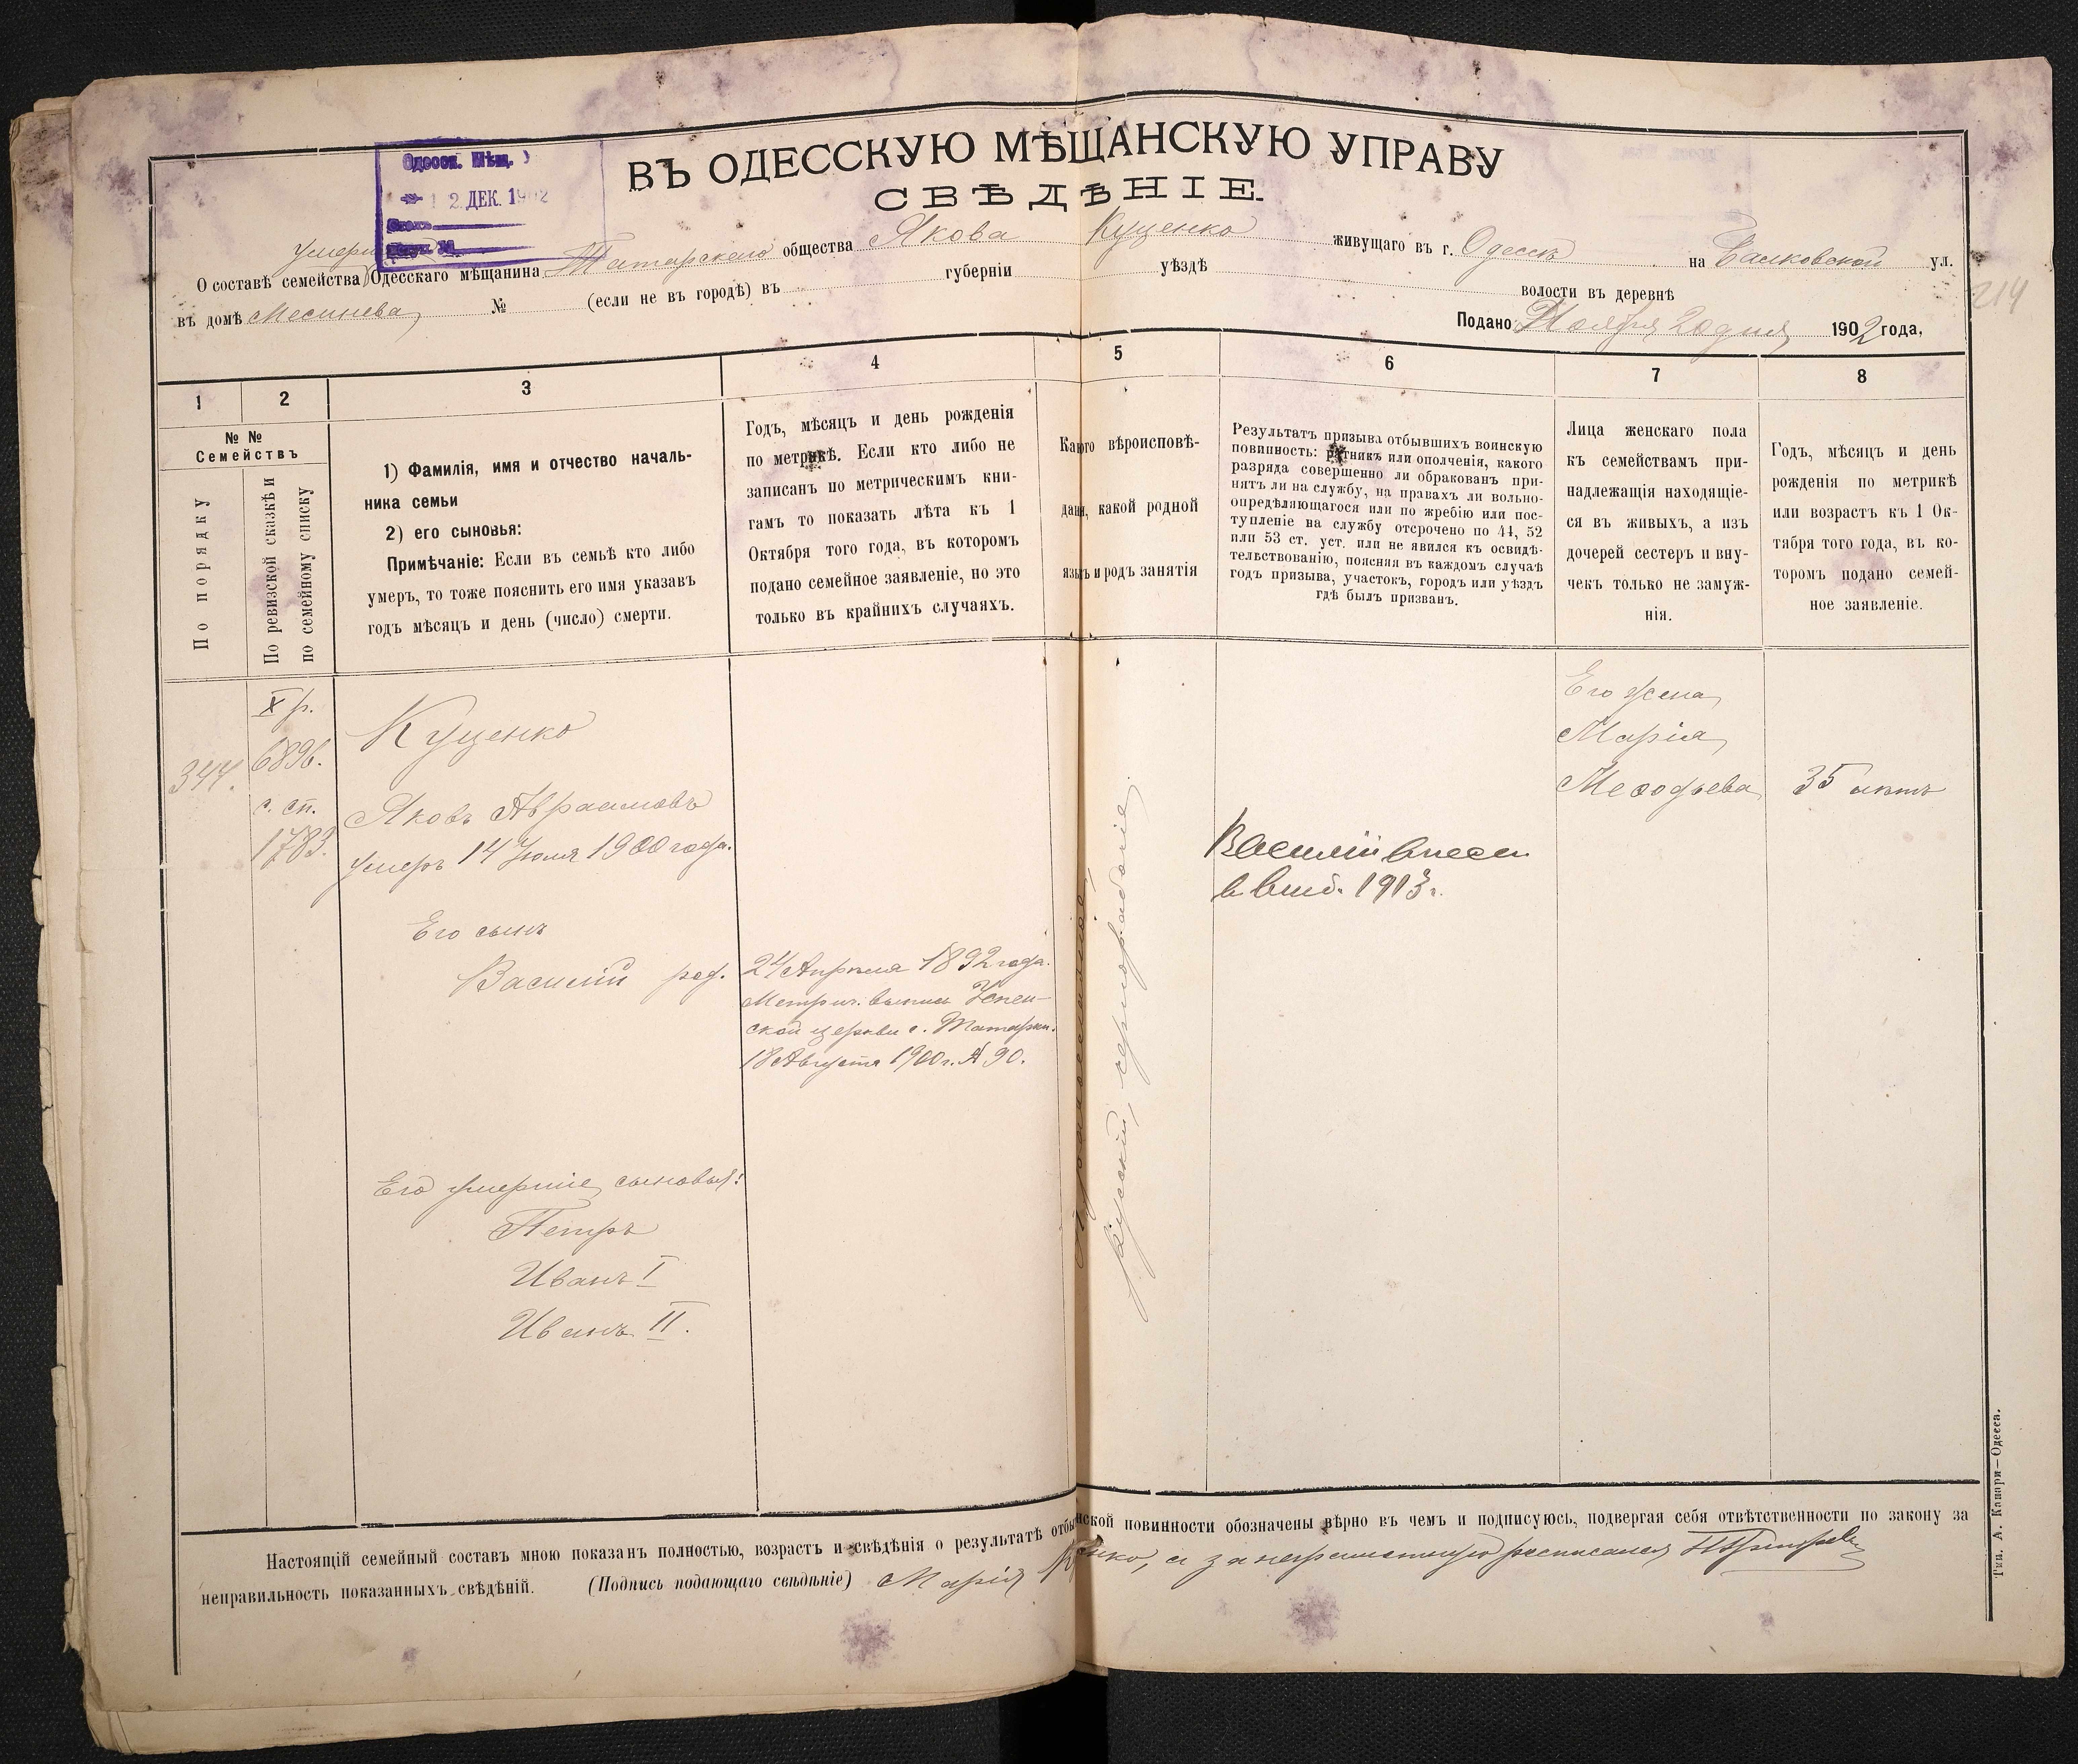 ВЪ ОДЕССКУЮ МѢЩАНСКУЮ УПРАВУ
СВѢДѢНІЕ.
Одесск. Мѣщ. У
12 ДЕК. 1902
О составѣ семейства Одесскаго мѣщанина Татарскаго общества Якова Куценко живущаго въ г. Одессѣ на Балковской ул.
въ домѣ № (если не въ городѣ) въ губерніи уѣздѣ волости въ деревнѣ
214
Подано Ноября 20 дня 1902 года,
1 2 3 4 5 6 7 8
№ №
Семействъ
По порядку
По ревизской сказкѣ и
по семейному списку
1) Фамилія, имя и отчество началь-
ника семьи
2) его сыновья:
Примѣчаніе: Если въ семьѣ кто либо
умеръ, то тоже пояснить его имя указавъ
годъ мѣсяцъ и день (число) смерти.
Годъ, мѣсяцъ и день рожденія
по метрикѣ. Если кто либо не
записанъ по метрическимъ кни-
гамъ то показать лѣта къ 1
Октября того года, въ которомъ
подано семейное заявленіе, но это
только въ крайнихъ случаяхъ.
Какого вѣроисповѣ-
данія, какой родной
языкъ и родъ занятія
Результатъ призыва отбывшихъ воинскую
повинность: ратникъ или ополченія, какого
разряда совершенно ли обракованъ при-
нятъ ли на службу, на правахъ ли вольно-
опредѣляющагося или по жребію или пос-
тупленіе на службу отсрочено по 44, 52
или 53 ст. уст. или не явился къ освидѣ-
тельствованію, поясняя въ каждомъ случаѣ
годъ призыва, участокъ, городъ или уѣздъ
гдѣ былъ призванъ.
Лица женскаго пола
къ семействамъ при-
надлежащія находящіе-
ся въ живыхъ, а изъ
дочерей сестеръ и вну-
чекъ только не замуж-
нія.
Годъ, мѣсяцъ и день
рожденія по метрикѣ
или возрастъ къ 1 Ок-
тября того года, въ ко-
торомъ подано семей-
ное заявленіе.
344.
X р.
689б.
с. сп.
1783.
Куценко
Яковъ Авраамовъ
умеръ 14 Іюля 1900 года.
Его сынъ
Василій род.
24 Апрѣля 1892 года.
Метрич. выпись Успен-
ской церкви с. Татарки.
18 Августа 1900 г. № 90.
Его умершіе сыновья:
Петръ
Иванъ I
Иванъ II.
Православное,
русскій, чернорабочіе
Василій внесен
в 1913 г.
Его жена
Марія
Меѳодьева
35 лѣтъ
Настоящій семейный составъ мною показанъ полностью, возрастъ и свѣдѣнія о результатѣ отбы нской повинности обозначены вѣрно въ чемъ и подписуюсь, подвергая себя отвѣтственности по закону за
неправильность показанныхъ свѣдѣній. (Подпись подающаго свѣдѣніе) Марія К нко, а за неграмотную росписался
Тип. А. Канари—Одесса.